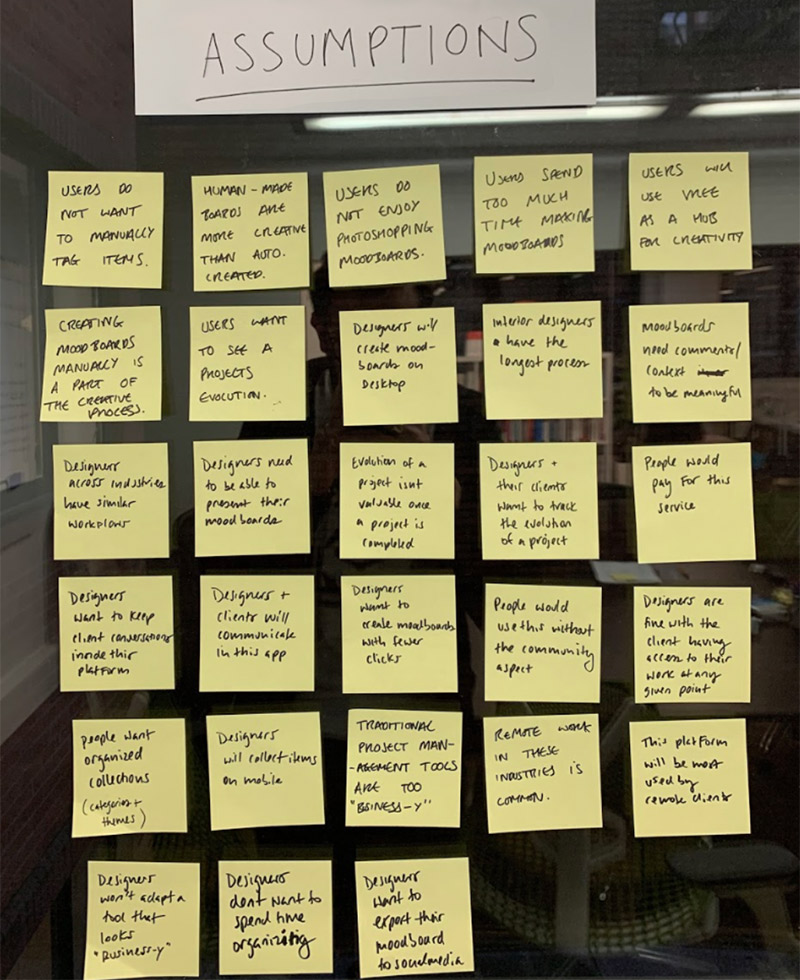 ASSUMPTIONS
USERS DO
NOT WANT
TO MANUALLY
TAG ITEMS.
HUMAN-MADE
BOARDS ARE
MORE CREATIVE
THAN AUTO.
CREATED.
USERS DO
NOT ENJOY
PHOTOSHOPPING
MOODBOARDS.
USERS SPEND
TOO MUCH
TIME MAKING
MOODBOARDS
USERS WILL
USE VREE
AS A HUB
FOR CREATIVITY
CREATING
MOODBOARDS
MANUALLY IS
A PART OF
THE CREATIVE
PROCESS.
USERS WANT
TO SEE A
PROJECTS
EVOLUTION.
Designers will
create mood-
boards on
Desktop
Interior designers
have the
longest process
Moodboards
need comments/
context
to be meaningful
Designers
across industries
have similar
workflows
Designers need
to be able to
present their
moodboards
Evolution of a
project isnt
valuable once
a project is
completed
Designers +
their clients
want to track
the evolution
of a project
People would
pay for this
service
Designers
want to keep
client conversations
inside their
platform
Designers +
clients will
communicate
in this app
Designers
want to
create moodboards
with fewer
clicks
People would
use this without
the community
aspect
Designers are
fine with the
client having
access to their
work at any
given point
people want
organized
collections
(categories +
themes)
Designers
will collect items
on mobile
TRADITIONAL
PROJECT MAN-
-AGEMENT TOOLS
ARE TOO
"BUSINESS-Y"
REMOTE WORK
IN THESE
INDUSTRIES IS
COMMON.
This platform
will be most
used by
remote clients
Designers
won't adapt a
tool that
looks
"Business-y"
Designers
dont want to
spend time
organizing
Designers
want to
export their
moodboard
to socialmedia